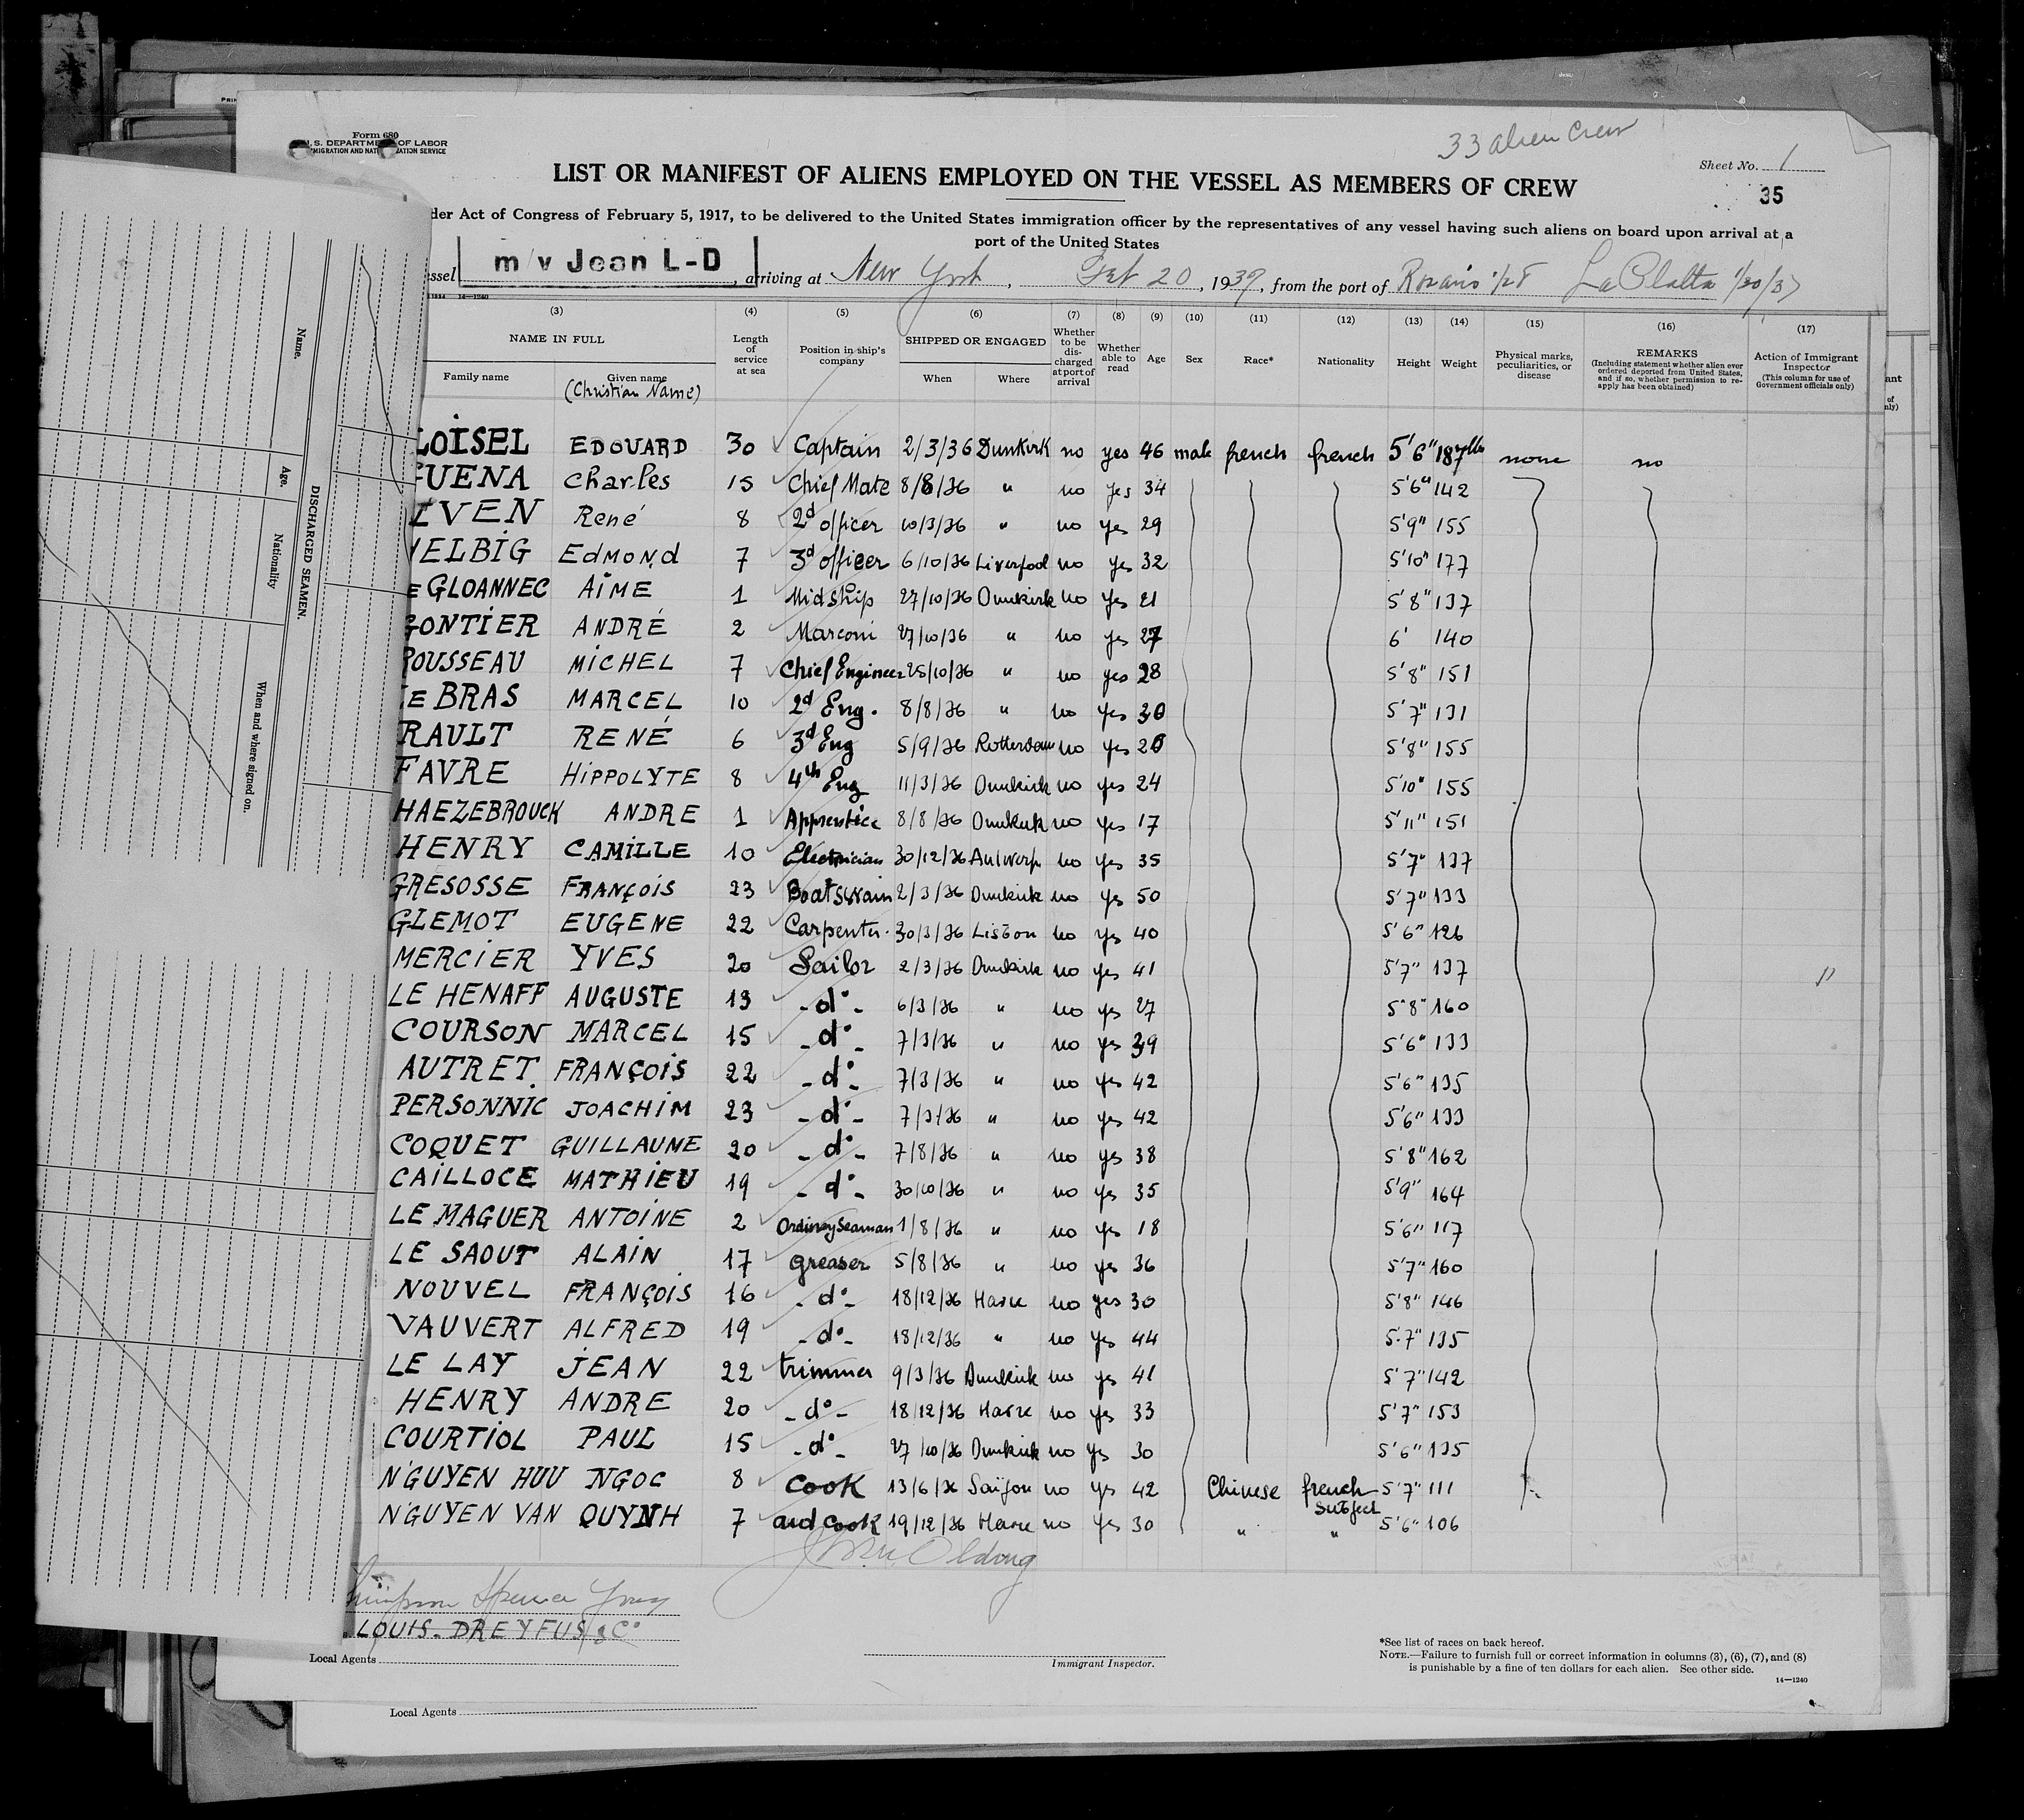 Form 680
U.S. DEPARTMENT OF LABOR
IMMIGRATION AND NATURALIZATION SERVICE
33 alien crew
Sheet No. 1
35
LIST OR MANIFEST OF ALIENS EMPLOYED ON THE VESSEL AS MEMBERS OF CREW
der Act of Congress of February 5, 1917, to be delivered to the United States immigration officer by the representatives of any vessel having such aliens on board upon arrival at a
port of the United States
ssel m/v Jean L-D, arriving at New York, Feb 20, 1937, from the port of Rosario 1/28 La Platta 1/30/37
14—1240
(3) (4) (5) (6) (7) (8) (9) (10) (11) (12) (13) (14) (15) (16) (17)
NAME IN FULL Length of service at sea Position in ship's company SHIPPED OR ENGAGED Whether to be discharged at port of arrival Whether able to read Age Sex Race* Nationality Height Weight Physical marks, peculiarities, or disease REMARKS (Including statement whether alien ever ordered deported from United States, and if so, whether permission to reapply has been obtained) Action of Immigrant Inspector (This column for use of Government officials only)
Family name Given name When Where
(Christian Name)
LOISEL EDOUARD 30 Captain 2/3/36 Dunkirk no yes 46 male french french 5'6" 187 lbs none no
GUENA Charles 15 Chief Mate 8/8/36 " no yes 34 5'6" 142
IVEN René 8 2d officer 10/3/36 " no yes 29 5'9" 155
HELBIG EDMOND 7 3d officer 6/10/36 Liverpool no yes 32 5'10" 177
LE GLOANNEC AIME 1 Midship 27/10/36 Dunkirk no yes 21 5'8" 137
GONTIER ANDRÉ 2 Marconi 27/10/36 " no yes 27 6' 140
ROUSSEAU MICHEL 7 Chief Engineer 25/10/36 " no yes 28 5'8" 151
LE BRAS MARCEL 10 2d Eng. 8/8/36 " no yes 30 5'7" 131
RAULT RENÉ 6 3d Eng 5/9/36 Rotterdam no yes 26 5'8" 155
FAVRE HIPPOLYTE 8 4th Eng 11/3/36 Dunkirk no yes 24 5'10" 155
HAEZEBROUCK ANDRE 1 Apprentice 8/8/36 Dunkirk no yes 17 5'11" 151
HENRY CAMILLE 10 Electrician 30/12/36 Antwerp no yes 35 5'7" 137
GRESOSSE FRANÇOIS 23 Boatswain 2/3/36 Dunkirk no yes 50 5'7" 133
GLEMOT EUGENE 22 Carpenter 30/3/36 Lisbon no yes 40 5'6" 126
MERCIER YVES 20 Sailor 2/3/36 Dunkirk no yes 41 5'7" 137
LE HENAFF AUGUSTE 13 -d°- 6/3/36 " no yes 27 5'8" 160
COURSON MARCEL 15 -d°- 7/3/36 " no yes 39 5'6" 133
AUTRET FRANÇOIS 22 -d°- 7/3/36 " no yes 42 5'6" 135
PERSONNIC JOACHIM 23 -d°- 7/3/36 " no yes 42 5'6" 133
COQUET GUILLAUME 20 -d°- 7/8/36 " no yes 38 5'8" 162
CAILLOCE MATHIEU 19 -d°- 30/10/36 " no yes 35 5'9" 164
LE MAGUER ANTOINE 2 Ordinary Seaman 1/8/36 " no yes 18 5'6" 117
LE SAOUT ALAIN 17 greaser 5/8/36 " no yes 36 5'7" 160
NOUVEL FRANÇOIS 16 -d°- 18/12/36 Havre no yes 30 5'8" 146
VAUVERT ALFRED 19 -d°- 18/12/36 " no yes 44 5'7" 135
LE LAY JEAN 22 trimmer 9/3/36 Dunkirk no yes 41 5'7" 142
HENRY ANDRE 20 -d°- 18/12/36 Havre no yes 33 5'7" 153
COURTIOL PAUL 15 -d°- 27/10/36 Dunkirk no yes 30 5'6" 135
N'GUYEN HUU NGOC 8 Cook 13/6/36 Saïgon no yes 42 Chinese french subject 5'7" 111
N'GUYEN VAN QUYNH 7 2nd cook 19/12/36 Havre no yes 30 " " 5'6" 106
Simpson Spence Young
LOUIS-DREYFUS & C°
Local Agents
Immigrant Inspector.
*See list of races on back hereof.
NOTE.—Failure to furnish full or correct information in columns (3), (6), (7), and (8)
is punishable by a fine of ten dollars for each alien. See other side.
14—1240
Local Agents
DISCHARGED SEAMEN.
Name.
Age.
Nationality
When and where signed on.